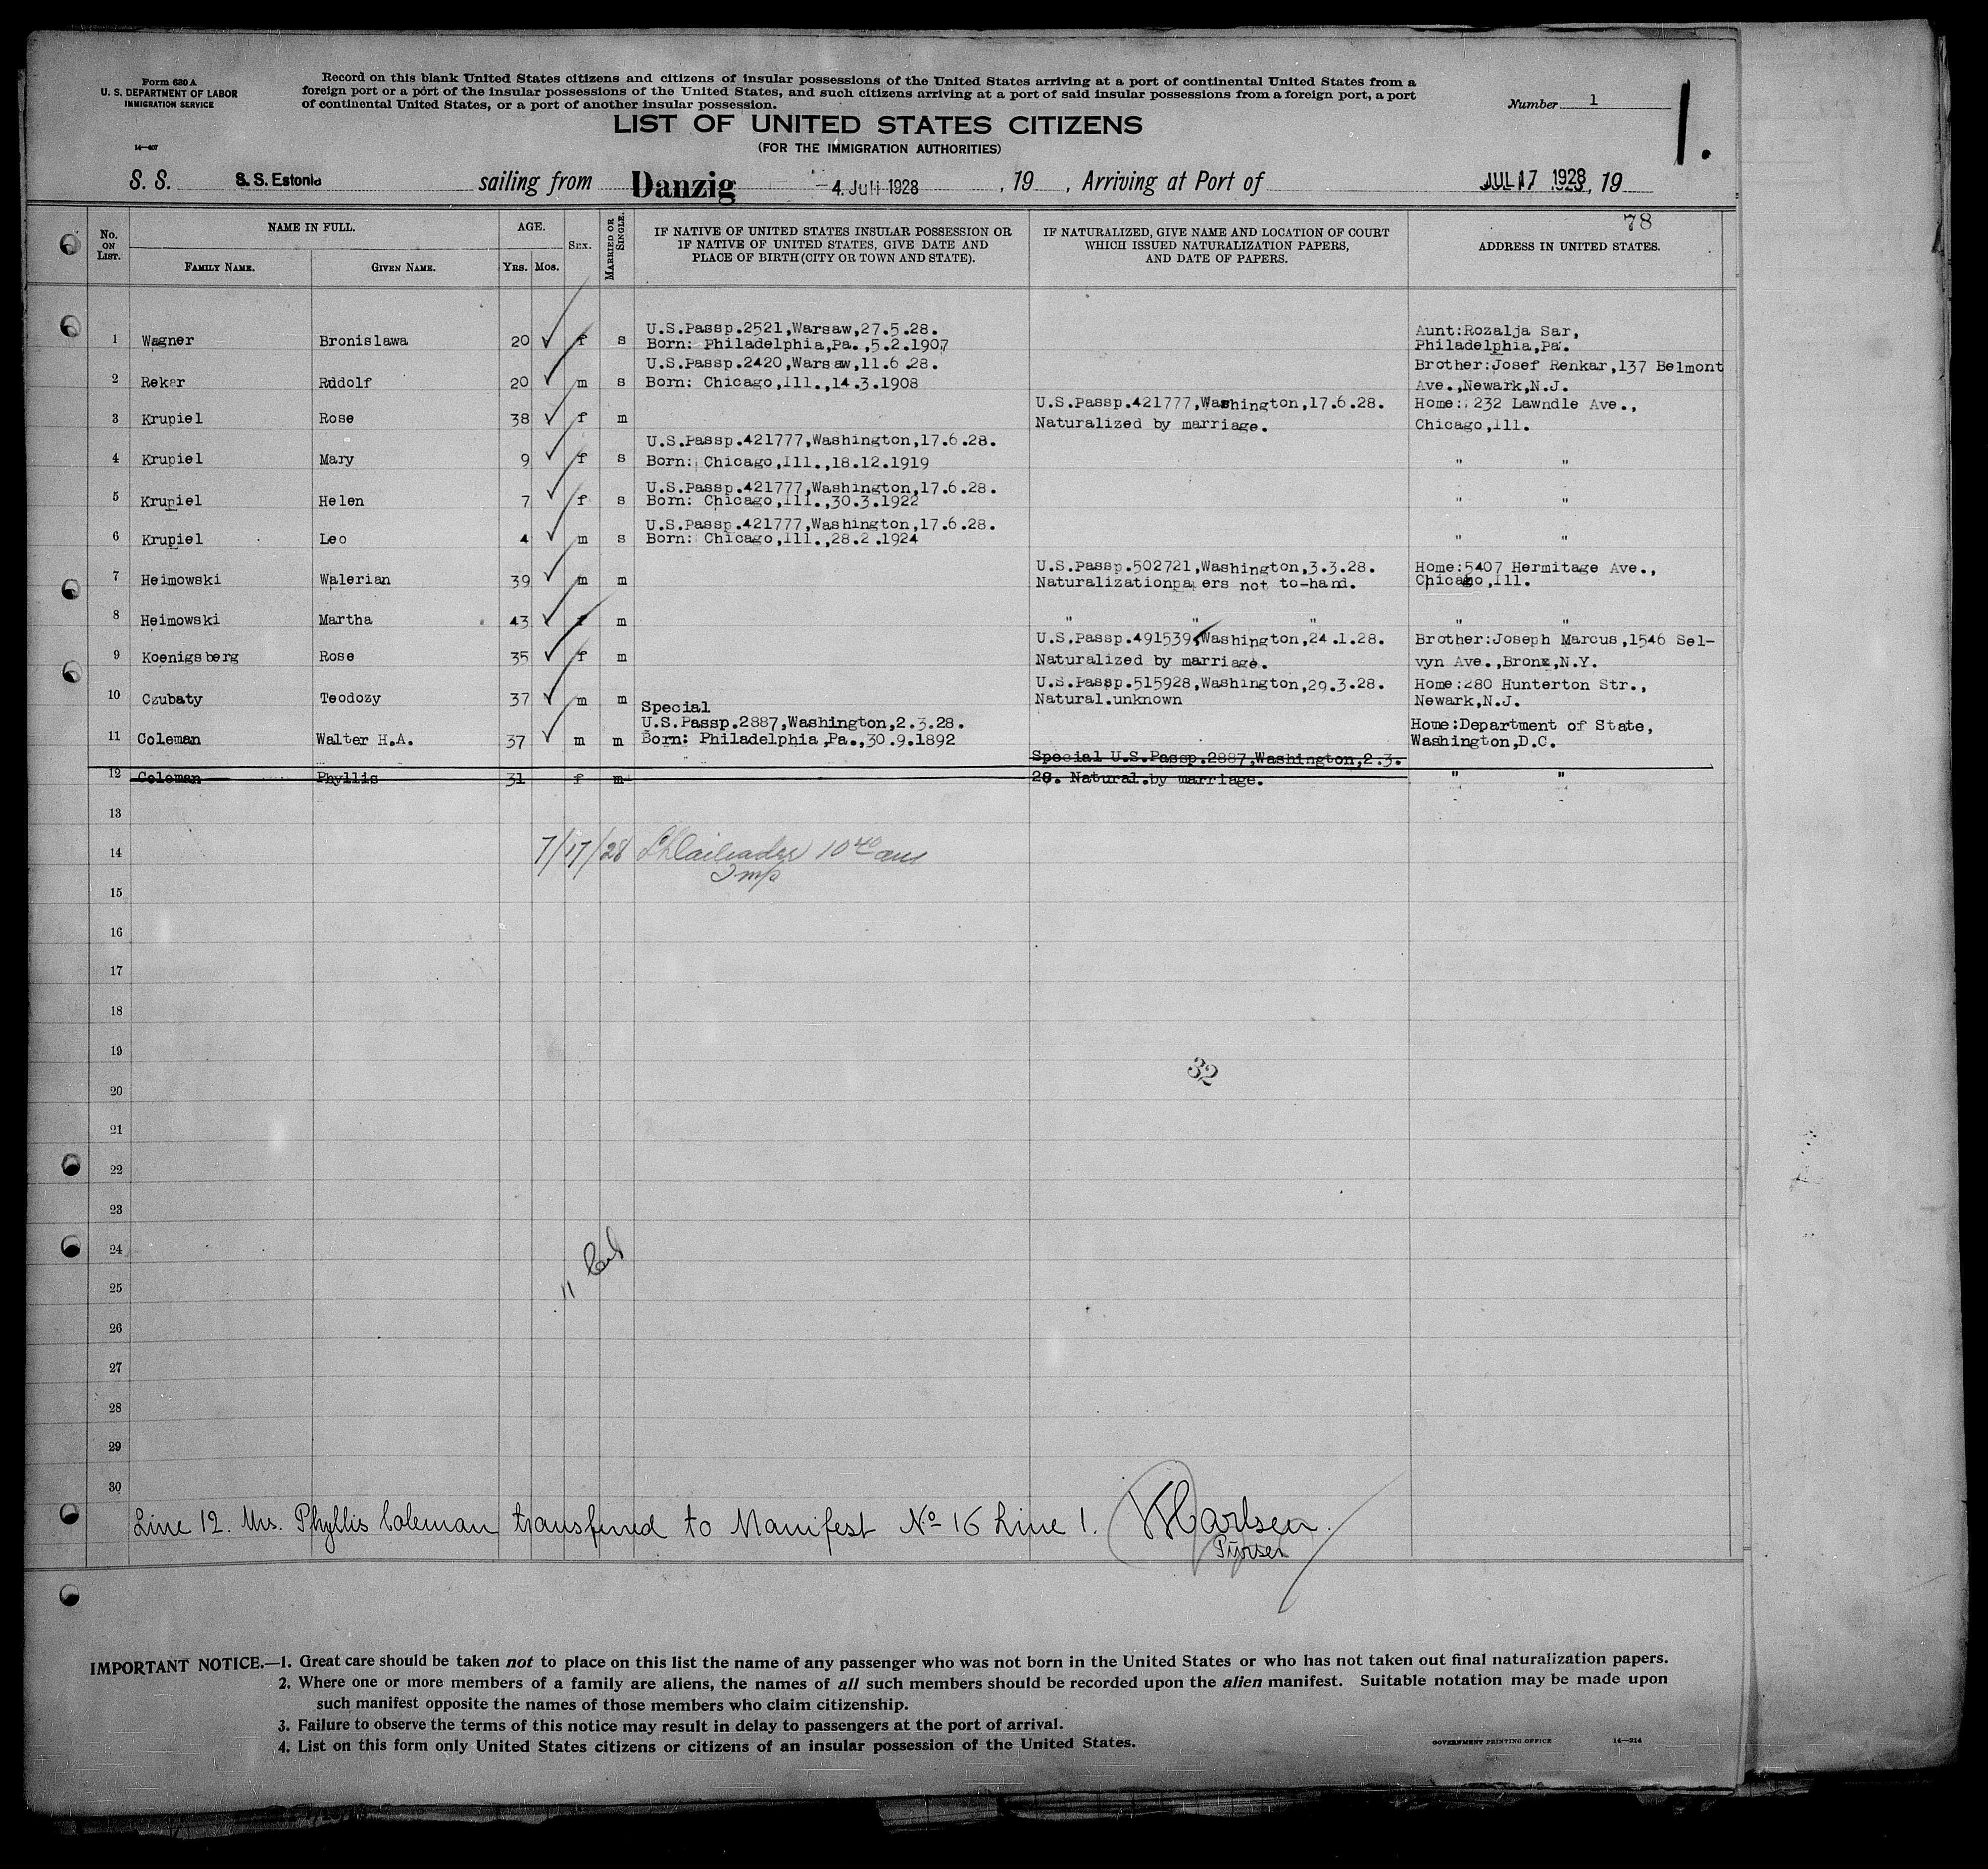 Form 630 A
U. S. DEPARTMENT OF LABOR
IMMIGRATION SERVICE
14—407
Record on this blank United States citizens and citizens of insular possessions of the United States arriving at a port of continental United States from a
foreign port or a port of the insular possessions of the United States, and such citizens arriving at a port of said insular possessions from a foreign port, a port
of continental United States, or a port of another insular possession.
Number 1
1.
LIST OF UNITED STATES CITIZENS
(FOR THE IMMIGRATION AUTHORITIES)
S. S. S. S. Estonia sailing from Danzig 4. Juli 1928, 19 , Arriving at Port of JUL 17 1928, 19
78
No. ON LIST. NAME IN FULL. AGE. SEX. MARRIED OR SINGLE. IF NATIVE OF UNITED STATES INSULAR POSSESSION OR IF NATIVE OF UNITED STATES, GIVE DATE AND PLACE OF BIRTH (CITY OR TOWN AND STATE). IF NATURALIZED, GIVE NAME AND LOCATION OF COURT WHICH ISSUED NATURALIZATION PAPERS, AND DATE OF PAPERS. ADDRESS IN UNITED STATES.
FAMILY NAME. GIVEN NAME. YRS. MOS.
U.S.Passp.2521,Warsaw,27.5.28. Aunt:Rozalja Sar,
1 Wagner Bronislawa 20 f s Born: Philadelphia,Pa.,5.2.1907 Philadelphia,Pa.
U.S.Passp.2420,Warsaw,11.6.28. Brother:Josef Renkar,137 Belmont
2 Reker Rudolf 20 m s Born: Chicago,Ill.,14.3.1908 Ave.,Newark,N.J.
U.S.Passp.421777,Washington,17.6.28. Home: 232 Lawndle Ave.,
3 Krupiel Rose 38 f m Naturalized by marriage. Chicago,Ill.
U.S.Passp.421777,Washington,17.6.28.
4 Krupiel Mary 9 f s Born: Chicago,Ill.,18.12.1919 " "
U.S.Passp.421777,Washington,17.6.28.
5 Krupiel Helen 7 f s Born: Chicago,Ill.,30.3.1922 " "
U.S.Passp.421777,Washington,17.6.28.
6 Krupiel Leo 4 m s Born: Chicago,Ill.,28.2.1924 " "
U.S.Passp.502721,Washington,3.3.28. Home:5407 Hermitage Ave.,
7 Heimowski Walerian 39 m m Naturalizationpa ers not to-hand. Chicago,Ill.
8 Heimowski Martha 43 f m " " " " "
U.S.Passp.491539,Washington,24.1.28. Brother:Joseph Marcus,1546 Sel-
9 Koenigsberg Rose 35 f m Naturalized by marriage. vyn Ave.,Bronx,N.Y.
U.S.Passp.515928,Washington,29.3.28. Home:280 Hunterton Str.,
10 Czubaty Teodozy 37 m m Natural.unknown Newark,N.J.
Special
U.S.Passp.2887,Washington,2.3.28. Home:Department of State,
11 Coleman Walter H.A. 37 m m Born: Philadelphia,Pa.,30.9.1892 Washington,D.C.
Special U.S.Passp.2887,Washington,2.3.
12 Coleman Phyllis 31 f m 28. Natural.by marriage. " "
13
14 7/17/28 10 40 am
15
16
17
18
19
32
20
21
22
23
24
25
26
27
28
29
30
Line 12. Mrs. Phyllis Coleman transferred to Manifest No 16 Line 1.
Purser
IMPORTANT NOTICE.—1. Great care should be taken not to place on this list the name of any passenger who was not born in the United States or who has not taken out final naturalization papers.
2. Where one or more members of a family are aliens, the names of all such members should be recorded upon the alien manifest. Suitable notation may be made upon
such manifest opposite the names of those members who claim citizenship.
3. Failure to observe the terms of this notice may result in delay to passengers at the port of arrival.
4. List on this form only United States citizens or citizens of an insular possession of the United States.
GOVERNMENT PRINTING OFFICE 14—314